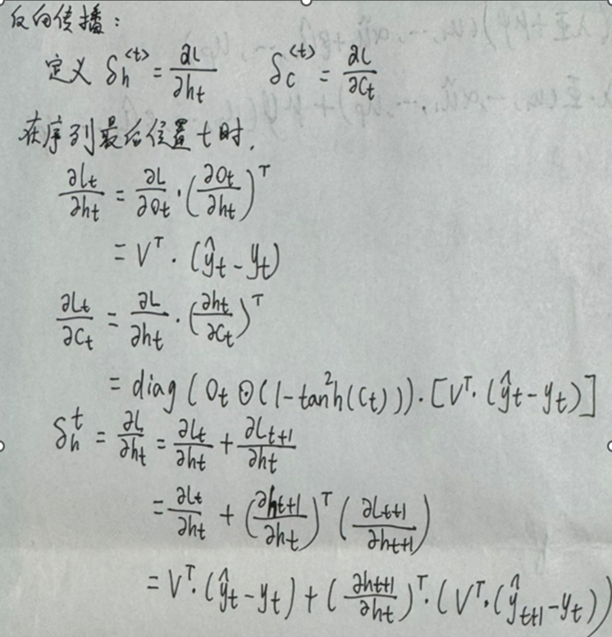 反向传播：
定义 δ_h^{<t>} = ∂L/∂h_t  δ_c^{<t>} = ∂L/∂C_t
在序列最后位置 t 时，
∂L_t/∂h_t = ∂L/∂O_t · (∂O_t/∂h_t)^T
= V^T · (ŷ_t - y_t)
∂L_t/∂C_t = ∂L/∂h_t · (∂h_t/∂C_t)^T
= diag(O_t ⊙ (1 - tan²h(C_t))) · [V^T · (ŷ_t - y_t)]
δ_h^t = ∂L/∂h_t = ∂L_t/∂h_t + ∂L_{t+1}/∂h_t
= ∂L_t/∂h_t + (∂h_{t+1}/∂h_t)^T (∂L_{t+1}/∂h_{t+1})
= V^T · (ŷ_t - y_t) + (∂h_{t+1}/∂h_t)^T · (V^T · (ŷ_{t+1} - y_t))